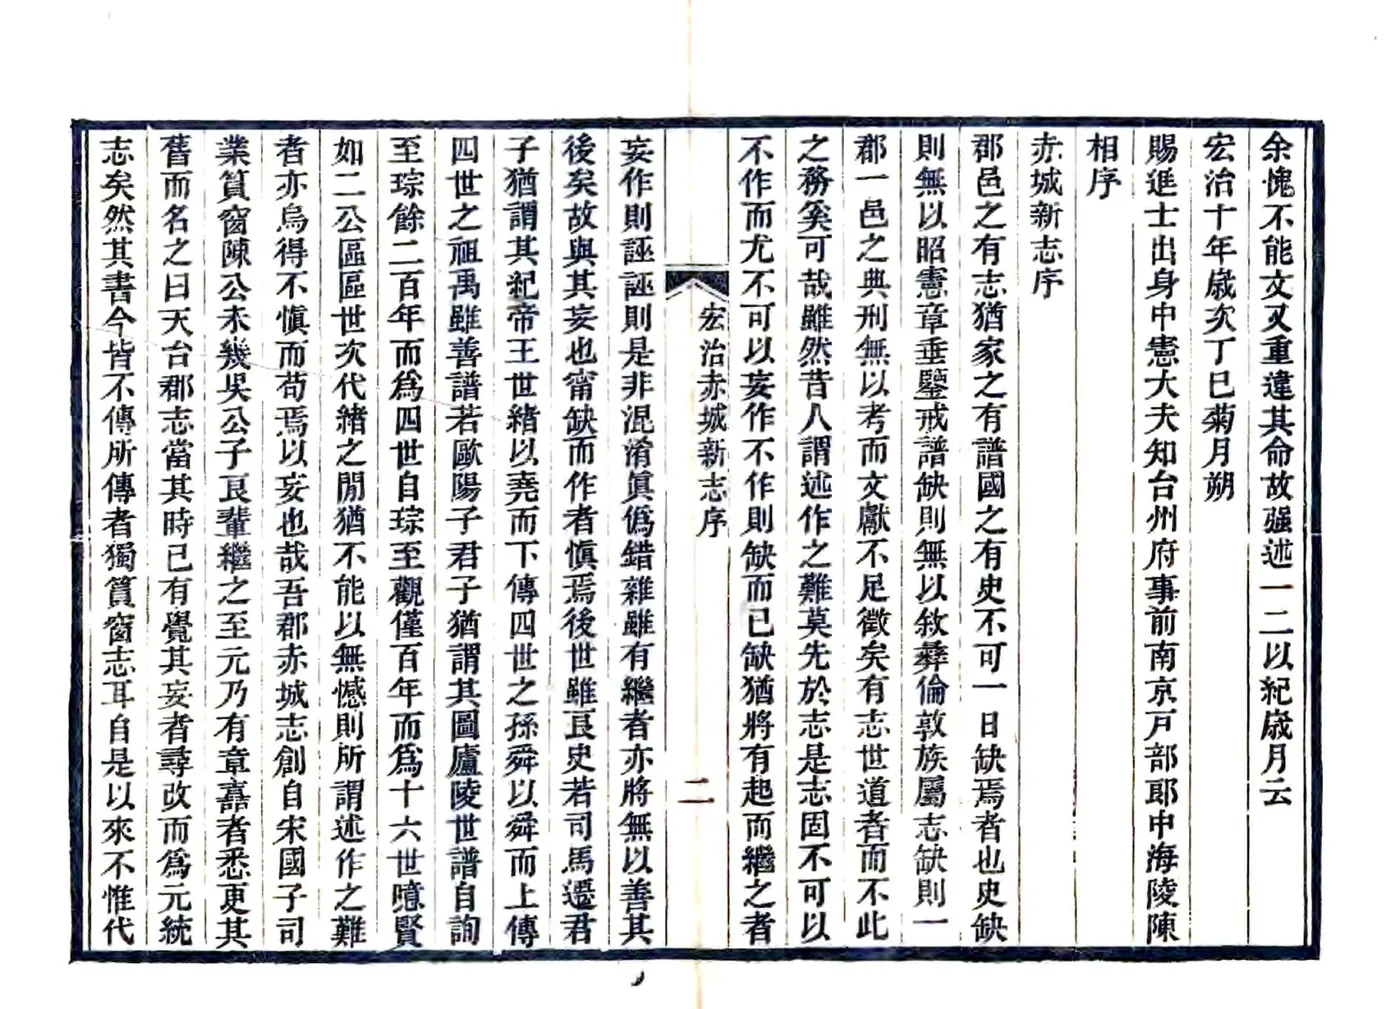 余愧不能文又重違其命故强述一二以紀歲月云
宏治十年歲次丁巳菊月朔
賜進士出身中憲大夫知台州府事前南京戸部郎中海陵陳
相序
赤城新志序
郡邑之有志猶家之有譜國之有史不可一日缺焉者也史缺
則無以昭憲章垂鑒戒譜缺則無以敘彝倫敦族屬志缺則一
郡一邑之典刑無以考而文獻不足徵矣有志世道者而不此
之務奚可哉雖然昔人謂述作之難莫先於志是志固不可以
不作而尤不可以妄作不作則缺而已缺猶將有起而繼之者
宏治赤城新志序
二
妄作則誣誣則是非混淆眞僞錯雜雖有繼者亦將無以善其
後矣故與其妄也甯缺而作者愼焉後世雖良史若司馬遷君
子猶謂其紀帝王世緒以堯而下傳四世之孫舜以舜而上傳
四世之祖禹雖善譜若歐陽子君子猶謂其圖廬陵世譜自詢
至琮餘二百年而爲四世自琮至觀僅百年而爲十六世噫賢
如二公區區世次代緒之閒猶不能以無憾則所謂述作之難
者亦烏得不愼而苟焉以妄也哉吾郡赤城志創自宋國子司
業篔窗陳公未幾吳公子良輩繼之至元乃有章嚞者悉更其
舊而名之曰天台郡志當其時已有覺其妄者尋改而爲元統
志矣然其書今皆不傳所傳者獨篔窗志耳自是以來不惟代